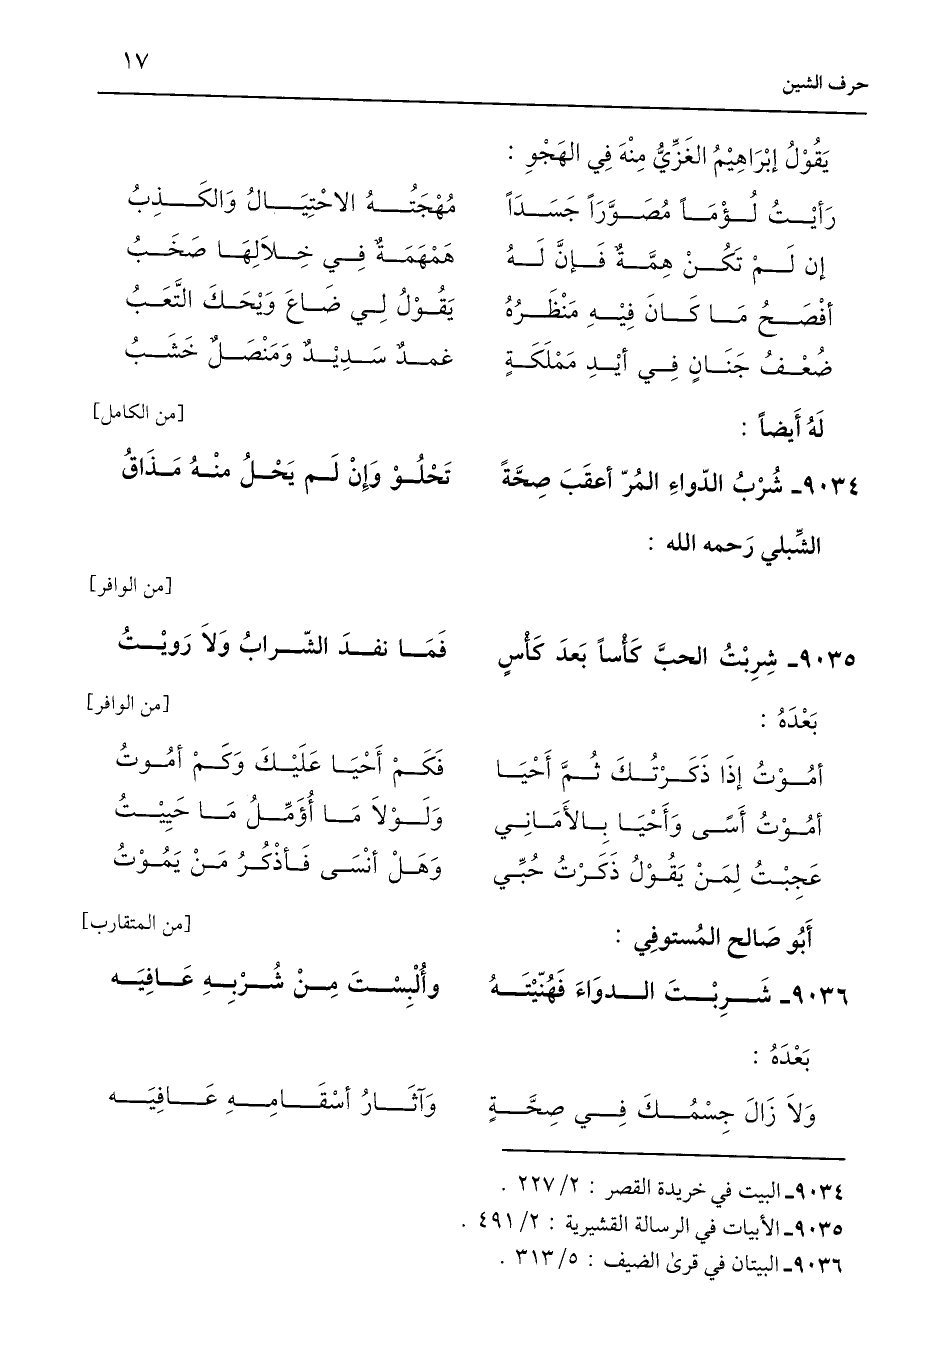 ١٧
حرف الشين
يَقُوْلُ إِبْرَاهِيْمُ الغَزِّيُّ مِنْهَ فِي الهَجْوِ :
رَأَيْتُ لُؤْمَاً مُصَوَّرَاً جَسَدَاً مُهْجَتُهُ الاحْتِيَالُ وَالكَذِبُ
إن لَمْ تَكُنْ هِمَّةٌ فَإنَّ لَهُ هَمْهَمَةٌ فِي خِلاَلِهَا صَخَبُ
أفْصَحُ مَا كَانَ فِيْهِ مَنْظَرُهُ يَقُوْلُ لِي ضَاعَ وَيْحَكَ التَّعَبُ
ضُعْفُ جَنَانٍ فِي أيْدِ مَمْلَكَةٍ غمدٌ سَدِيْدٌ وَمَنْصَلٌ خَشَبُ
[من الكامل]
لَهُ أَيضاً :
٩٠٣٤ـ شُرْبُ الدّواءِ المُرّ أعقَبَ صِحَّةً تَحْلُوْ وَإِنْ لَم يَحْلُ منْهُ مَذَاقُ
الشِّبلي رَحمه الله :
[من الوافر]
٩٠٣٥ـ شِرِبْتُ الحبَّ كَأْساً بَعدَ كَأْسٍ فَمَا نفدَ الشّرابُ وَلاَ رَويْتُ
[من الوافر]
بَعْدَهُ :
أمُوْتُ إذَا ذَكَرْتُكَ ثُمَّ أَحْيَا فَكَمْ أَحْيَا عَلَيْكَ وَكَمْ أمُوتُ
أمُوْتُ أَسًى وَأَحْيَا بِالأَمَانِي وَلَوْلاَ مَا أُؤَمِّلُ مَا حَيِيْتُ
عَجِبْتُ لِمَنْ يَقُوْلُ ذَكَرْتُ حُبِّي وَهَلْ أنْسَى فَأذْكُرُ مَنْ يَمُوْتُ
[من المتقارب]
أَبُو صَالح المُستوفِي :
٩٠٣٦ـ شَرِبْتَ الدوَاءَ فَهُنّيْتَهُ وأُلْبِسْتَ مِنْ شُرْبِهِ عَافِيَه
بَعْدَهُ :
وَلاَ زَالَ جِسْمُكَ فِي صِحَّةٍ وَآثَارُ أسْقَامِهِ عَافِيَه
٩٠٣٤ـ البيت في خريدة القصر : ٢/ ٢٢٧ .
٩٠٣٥ـ الأبيات في الرسالة القشيرية : ٢/ ٤٩١ .
٩٠٣٦ـ البيتان في قرىٰ الضيف : ٥/ ٣١٣ .